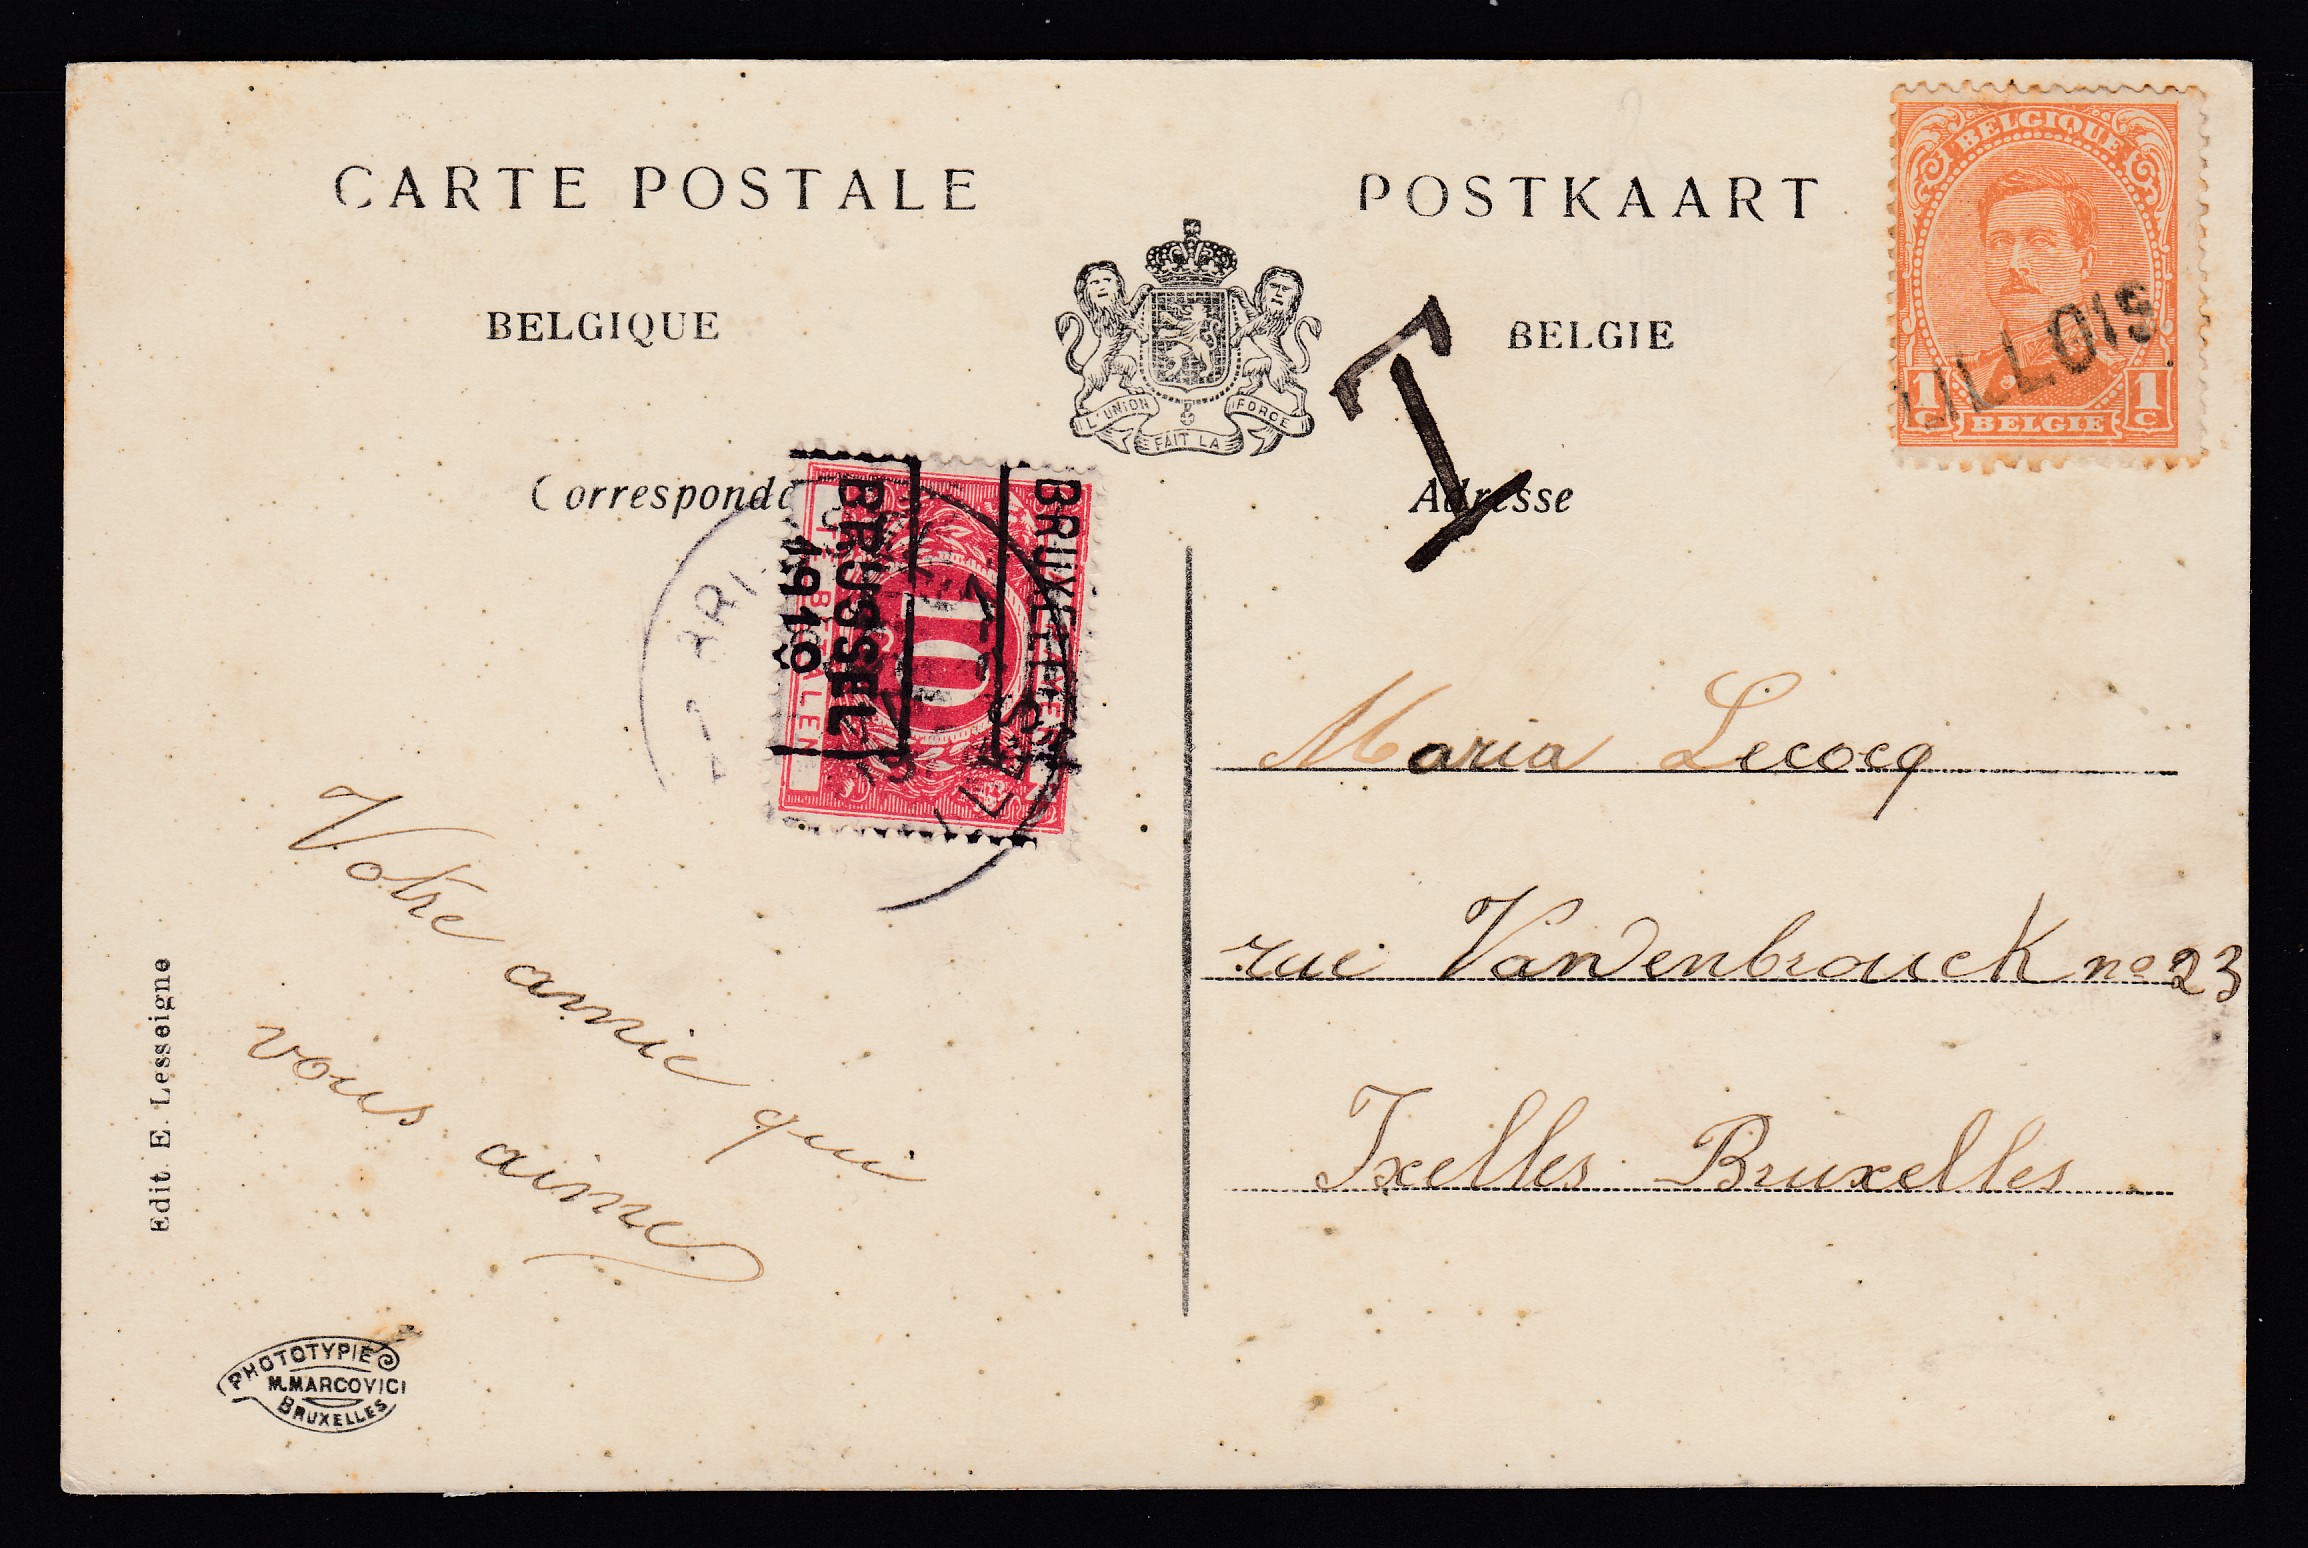 CARTE POSTALE
POSTKAART
BELGIQUE
BELGIE
L'UNION FAIT LA FORCE
BELGIQUE
1 C BELGIE 1 C
LILLOIS
T
Adresse
BRUXELLES
BRUSSEL
1919
10
Maria Lecocq
rue Vandenbrouck no 23
Ixelles Bruxelles
Votre amie qui
vous aime
Edit. E. Lesseigne
PHOTOTYPIE
M. MARCOVICI
BRUXELLES